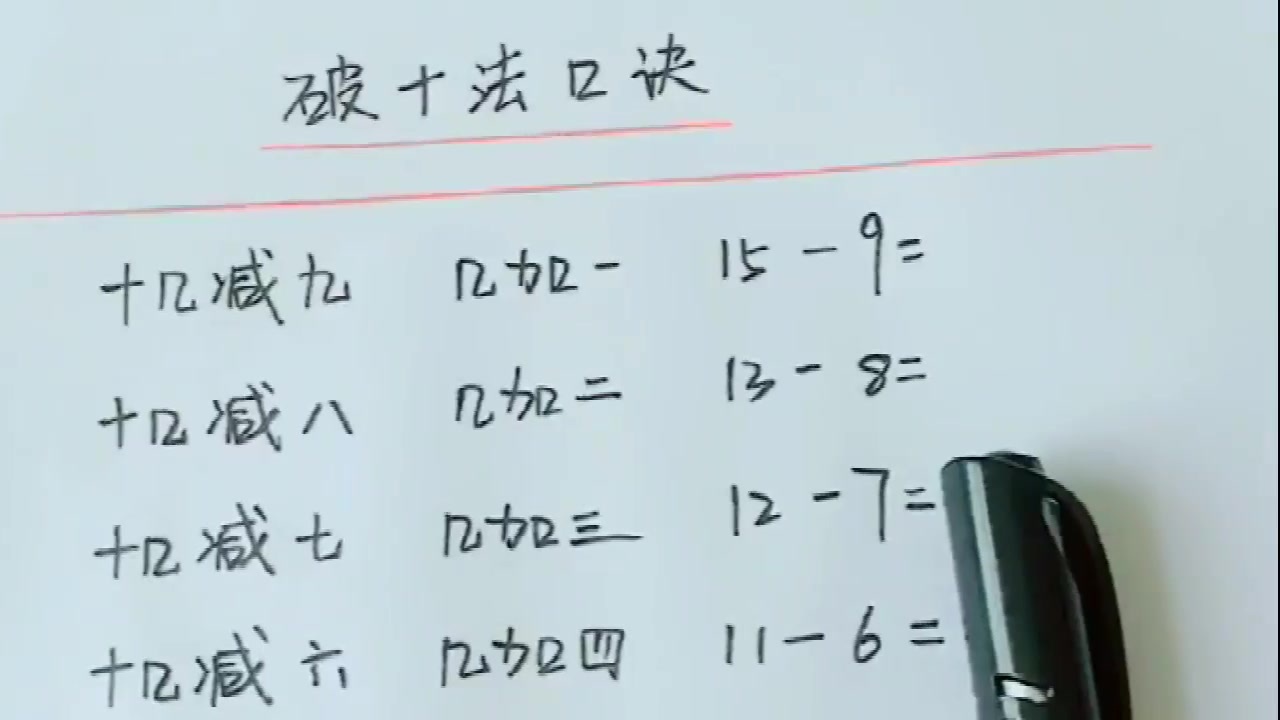 破十法口诀
十几减九 几加一 15-9=
十几减八 几加二 13-8=
十几减七 几加三 12-7=
十几减六 几加四 11-6=